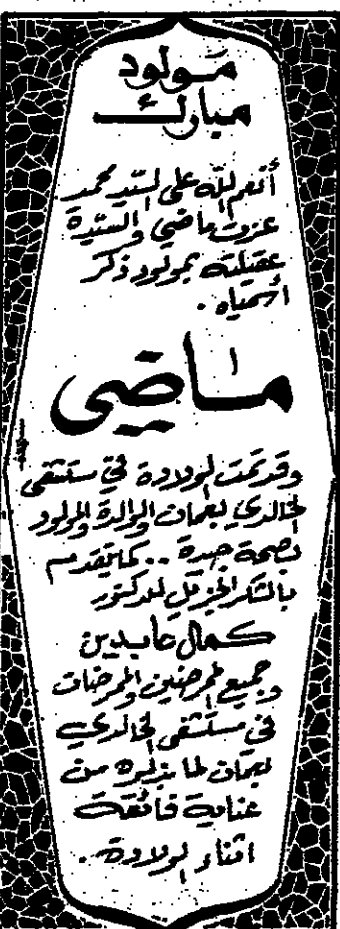 مولود
مبارك
أنعم الله على السيد محمد
عزت ماضي والسيدة
عقيلته بمولود ذكر
اسمياه .
ماضي
وقد تمت الولادة في مستشفى
الخالدي بعمان الوالدة والمولود
بصحة جيدة .. كما يتقدم
بالشكر الجزيل للدكتور
كمال عابدين
وجميع الممرضين والممرضات
في مستشفى الخالدي
بعمان لما بذلوه من
عناية فائقة
اثناء الولادة .